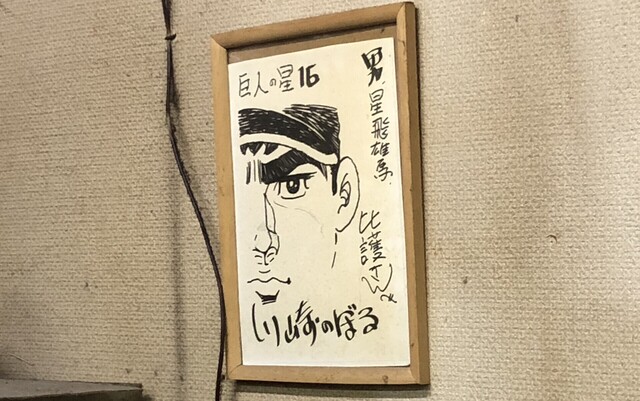 巨人の星 16
男 星飛雄馬
比護さん
川崎のぼる